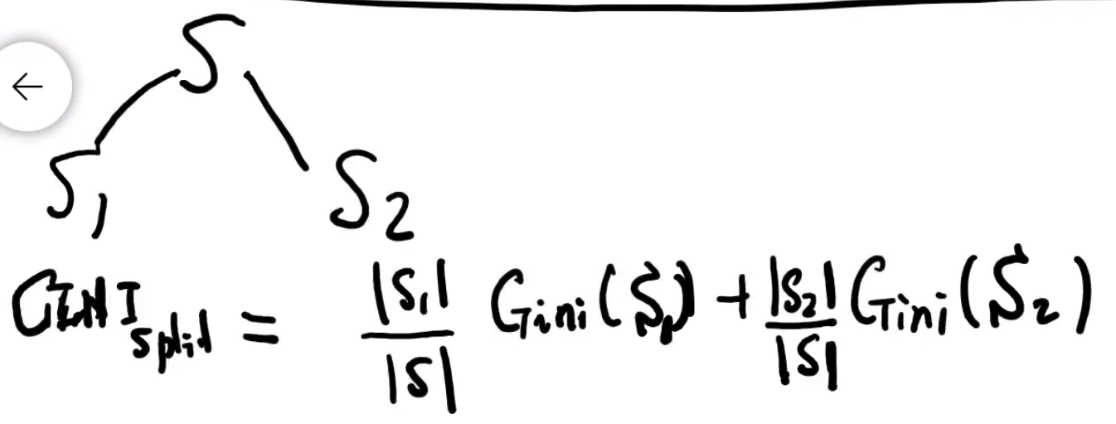 S
S₁ S₂
GINI split = |S₁|/|S| Gini(S₁) + |S₂|/|S| Gini(S₂)